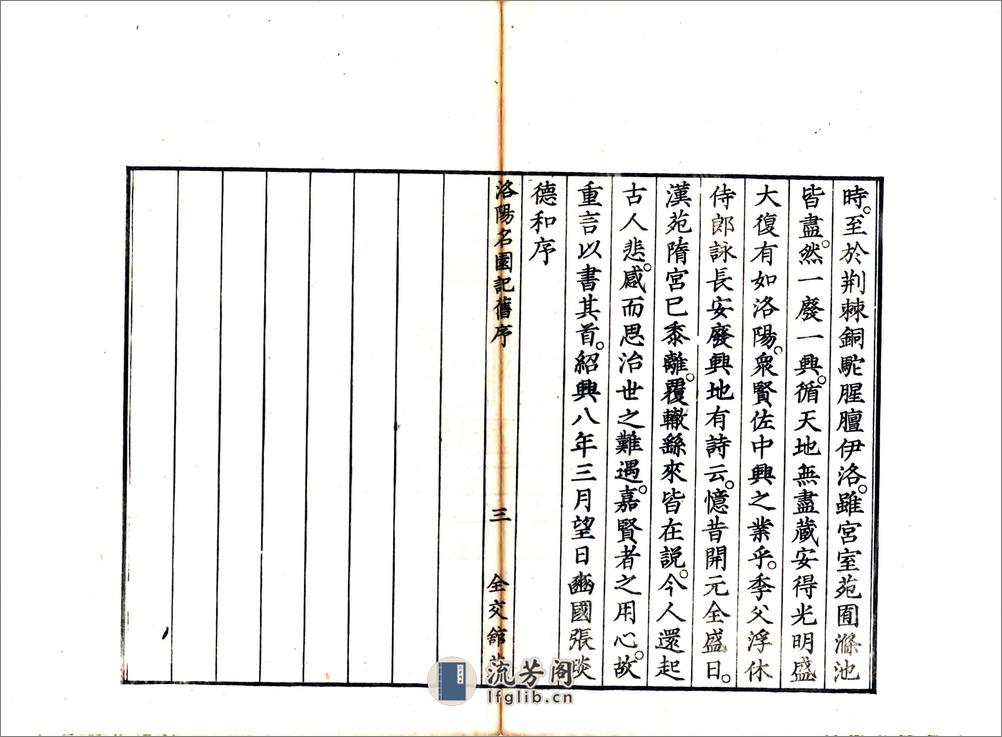 時。至於荆棘銅駝腥膻伊洛。雖宮室苑囿滌池
皆盡。然一廢一興。循天地無盡藏安得光明盛
大復有如洛陽。衆賢佐中興之業乎。季父浮休
侍郎詠長安廢興地有詩云。憶昔開元全盛日。
漢苑隋宮已黍離。覆轍繇來皆在説。今人還起
古人悲。感而思治世之難遇。嘉賢者之用心。故
重言以書其首。紹興八年三月望日豳國張琰
德和序
洛陽名園記舊序
三
全交館
流芳阁
lfglib.cn